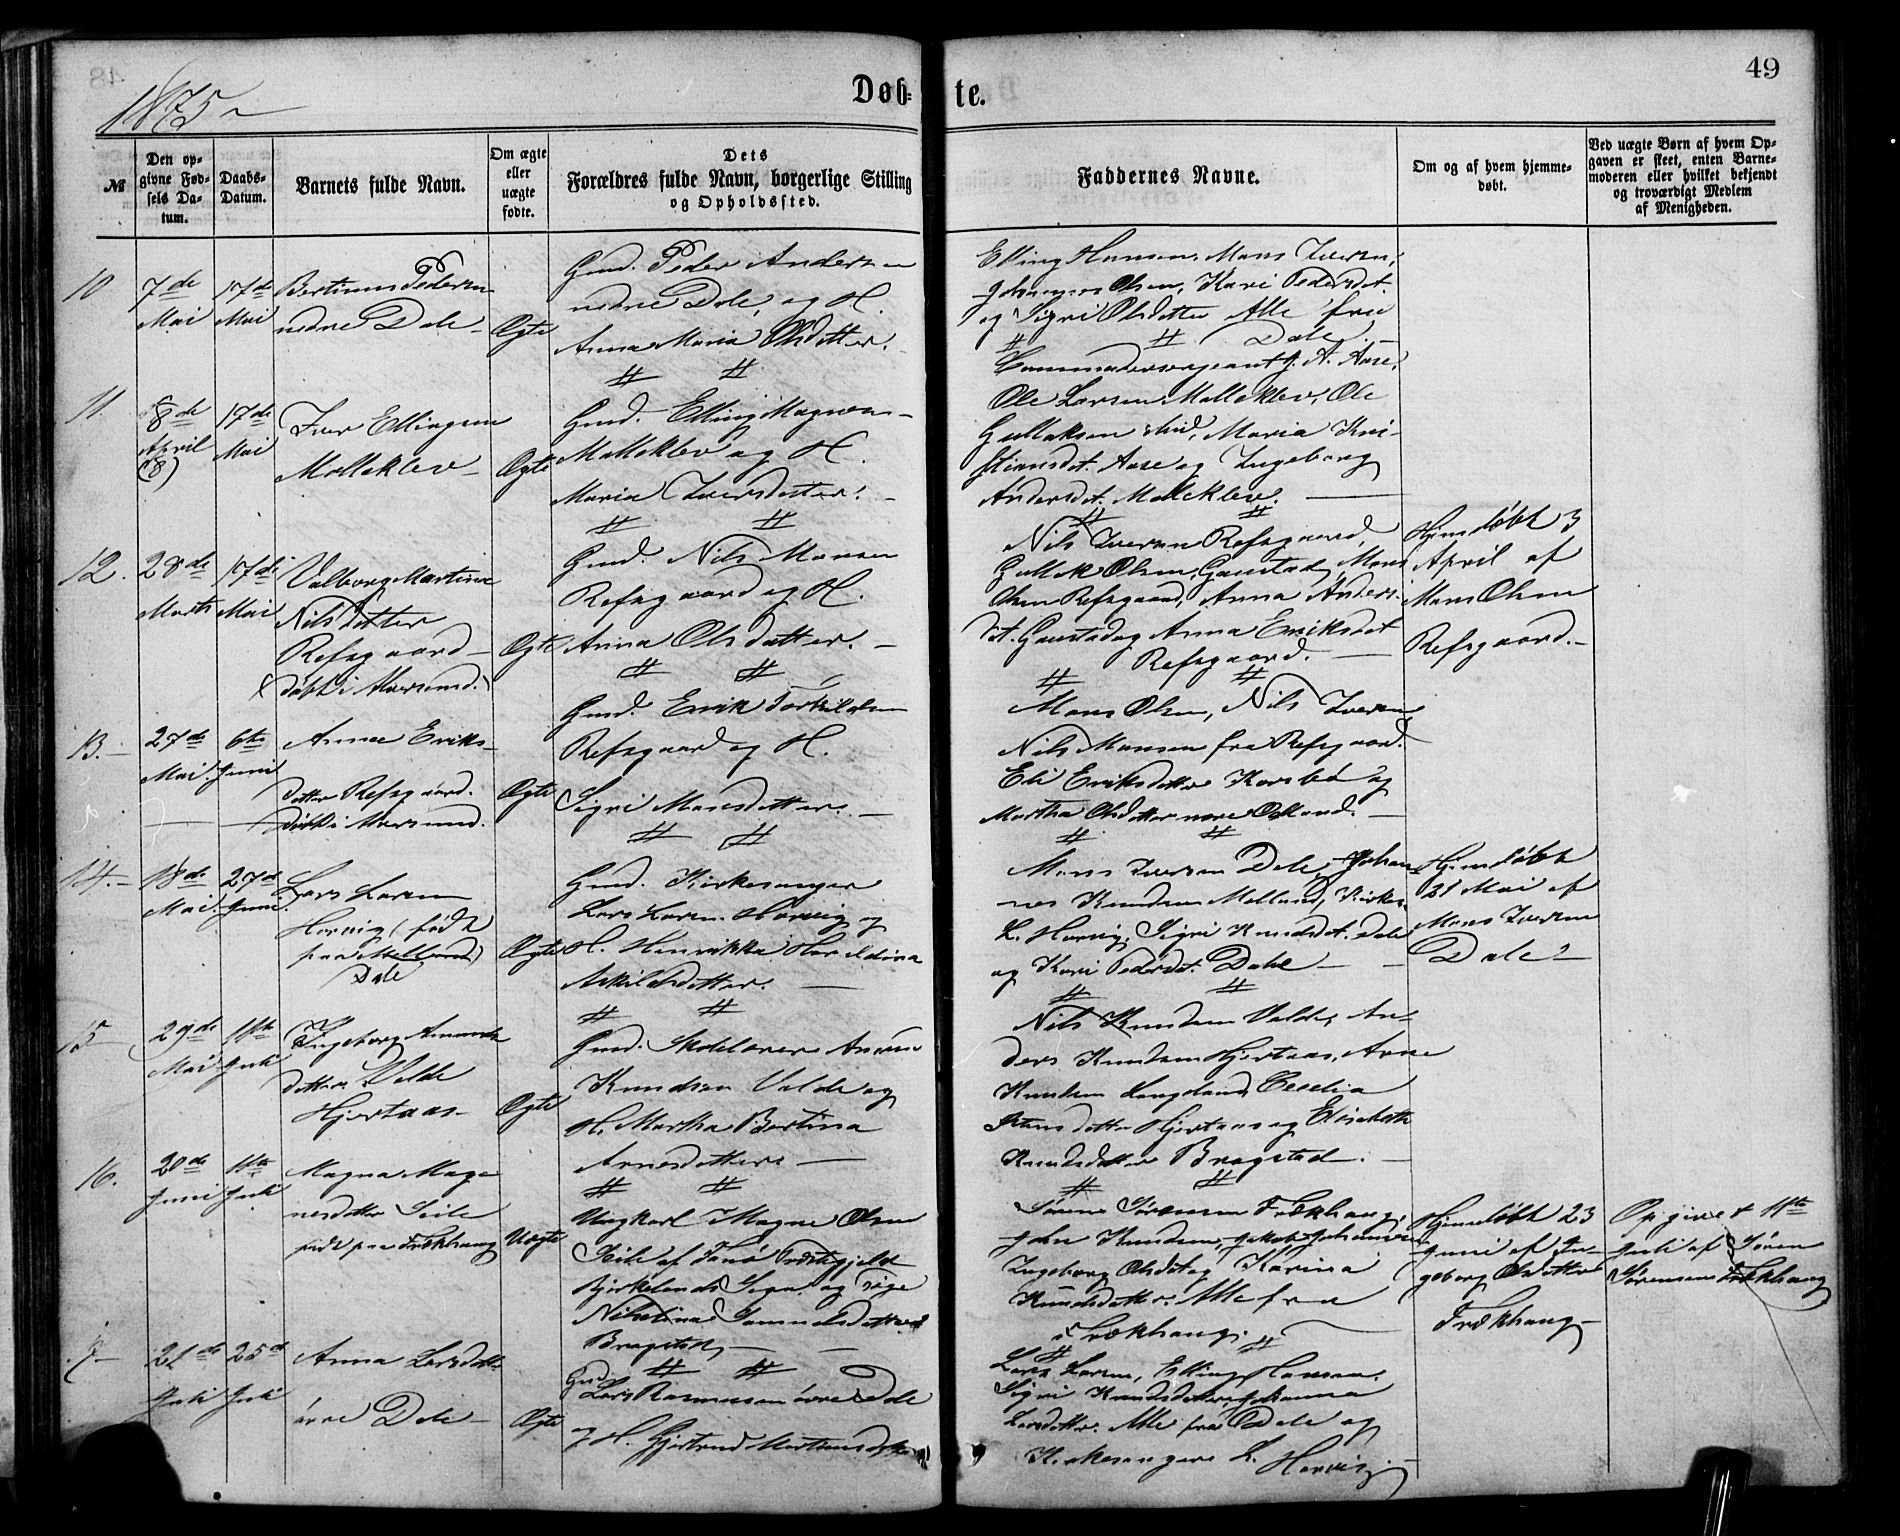 49
1875
Døb-
te.
№
Den op-
givne Fød-
sels Da-
tum.
Daabs-
Datum.
Barnets fulde Navn.
Om ægte
eller
uægte
fødte.
Dets
Forældres fulde Navn, borgerlige Stilling
og Opholdssted.
Faddernes Navne.
Om og af hvem hjemme-
døbt.
Ved uægte Børn af hvem Op-
gaven er skeet, enten Barne-
moderen eller hvilket bekjendt
og troværdigt Medlem
af Menigheden.
10
7de
Mai
17de
Mai
Bertinus Pedersen
nedre Dale
Ægte
Gmd. Peder Andersen
nedre Dale, og H.
Anna Maria Olsdatter.
Elling Hansen, Mons Iversen,
Johannes Olsen, Kari Pedersdt.
og Sigri Olsdatter Alle fra
Dale.
11.
8de
April
(8)
17de
Mai
Iver Ellingsen
Molleklev
Ægte
Gmd. Elling Magnesen
Molleklev og H.
Maria Iversdatter.
Commandersergeant J. A. Aase,
Ole Larsen Molleklev, Ole
Gulleksen ibid, Maria Kri-
stiansdt. Aase og Ingeborg
Andersdt. Molleklev.
12.
28de
Marts
17de
Mai
Valborg Martine
Nilsdatter
Refsgaard
(døbt i Alversund.)
Ægte
Gmd. Nils Monsen
Refsgaard og H.
Anna Olsdatter.
Nils Iversen Refsgaard,
Gullek Olsen Gaustad, Mons
Olsen Refsgaard, Anna Anders-
dt. Gaustad og Anna Eriksdt
Refsgaard.
Hjemdøbt 3
April af
Mons Olsen
Refsgaard.
13.
27de
Mai.
6te
Juni
Anna Eriks-
datter Refsgaard.
døbt i Alversund.
Ægte
Gmd. Erik Torkildsen
Refsgaard og H.
Sigri Monsdatter.
Mons Olsen, Nils Iversen
Nils Monsen fra Refsgaard.
Eli Eriksdatter og
Martha Olsdatter
14.
18de
Mai
27de
Juni.
Lars Larsen
Horvig (født
paa Melland)
Dale
Ægte
Gmd. Kirkesanger
Lars Larsen Horvig og
H. Henrikka Haraldina
Askildsdatter.
Mons Iversen Dale, Johan-
nes Knudsen Melland, Kirkes.
L. Horvig, Sigri Knudsdt. Dale
og Kari Pedersdt. Dale
Hjemdøbt
21 Mai af
Mons Iversen
Dale
15
29de
Mai
11te
Juli
Ingeborg
datter Valde
Hjertaas
Ægte
Gmd. Skolelærer
Knudsen Valde og
H. Martha Bertina
Arnesdatter
Nils Knudsen Valde, An-
ders Knudsen Hjertaas, Arne
Knudsen Langeland, Cecelia
datter Hjertaas og Elisabeth
Knudsdatter Bragstad.
16.
20de
Juni
11te
Juli
Magna Mag-
nesdatter Seile
født paa Trækhaug
Uægte
Ungkarl Magne Olsen
Seile af Præstegjeld
Bjerkelands Sogn og Pige
Nilsdatter Samuelsdatter
Bragstad,
Søren Sørensen Trækhaug,
John Knudsen, Jakob Johannesen
Ingeborg Olsdt og Karina
Knudsdatter. Alle fra
Trækhaug.
Hjemdøbt 23
Juni af In-
geborg Olsdatter
Trækhaug
Opgivet 11te
Juli af Søren
Sørensen Trækhaug
21de
Juli
25de
Juli
Anna Larsdatter
øvre Dale
Ægte
Gmd
Lars Rasmussen øvre Dale
og H. Gjertrud
Lars Larsen, Elling Hansen,
Sigri Knudsdatter, Johanna
Larsdatter. Alle fra Dale og
Kirkesanger L. Horvig